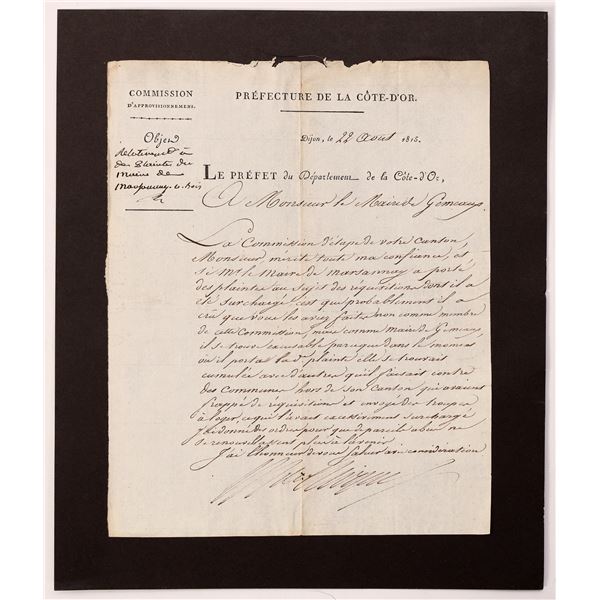 COMMISSION
D'APPROVISIONNEMENT.
PRÉFECTURE DE LA CÔTE-D'OR.
Dijon, le 22 Aout 1815.
Objet
relativement à
des plaintes du
maire de
marsannay le bois
LE PRÉFET du Département de la Côte-d'Or,
A Monsieur le Maire de Gémeaux.
La Commission d'étape de votre Canton,
Monsieur, mérite toute ma confiance, et
si Mr. le maire de marsannay a porté
des plaintes au sujet des réquisitions dont il a
été surchargé c'est que probablement il a
cru que vous les aviez faites non comme membre
de cette Commission, mais comme maire de Gémeaux,
il se trouve excusable parceque dans le moment
où il portait la de. plainte elle se trouvait
cumulée avec d'autres qu'il faisait contre
des Communes hors de son Canton qui avaient
frappé de réquisition et envoyé des troupes
à loger, ce qui l'avait excessivement surchargé
J'ai donné des ordres pour que de pareils abus ne
se renouvellassent plus à l'avenir
J'ai l'honneur de vous saluer avec considération